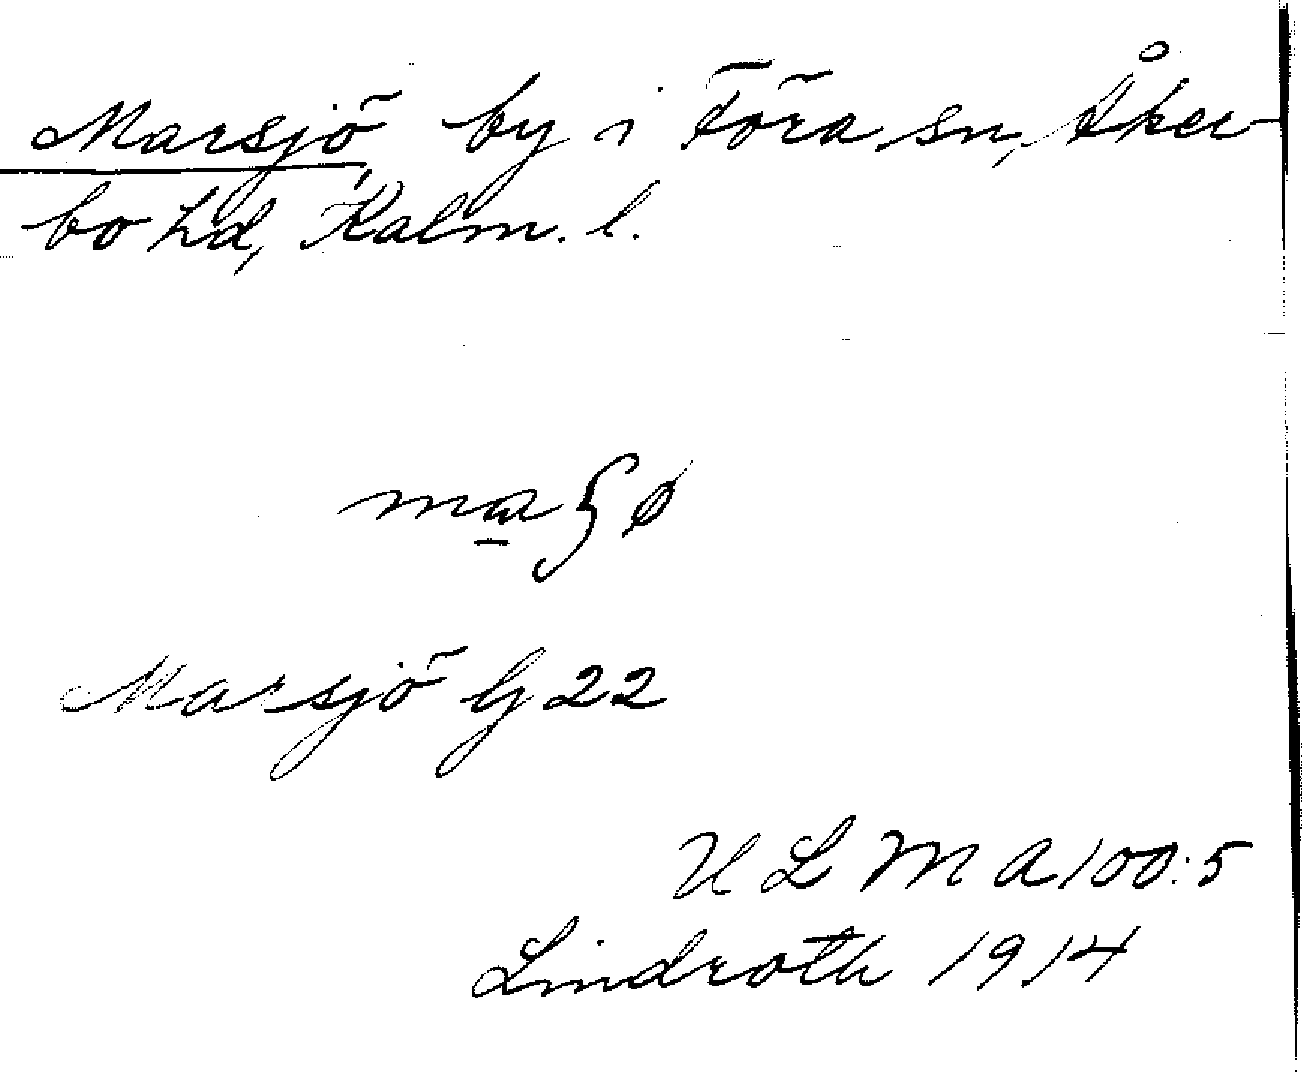 Marsjö, by i Föra sn, Åker-
bo hd, Kalm. l.
Marsjö G 22
ULMA 100:5
Lindroth 1914